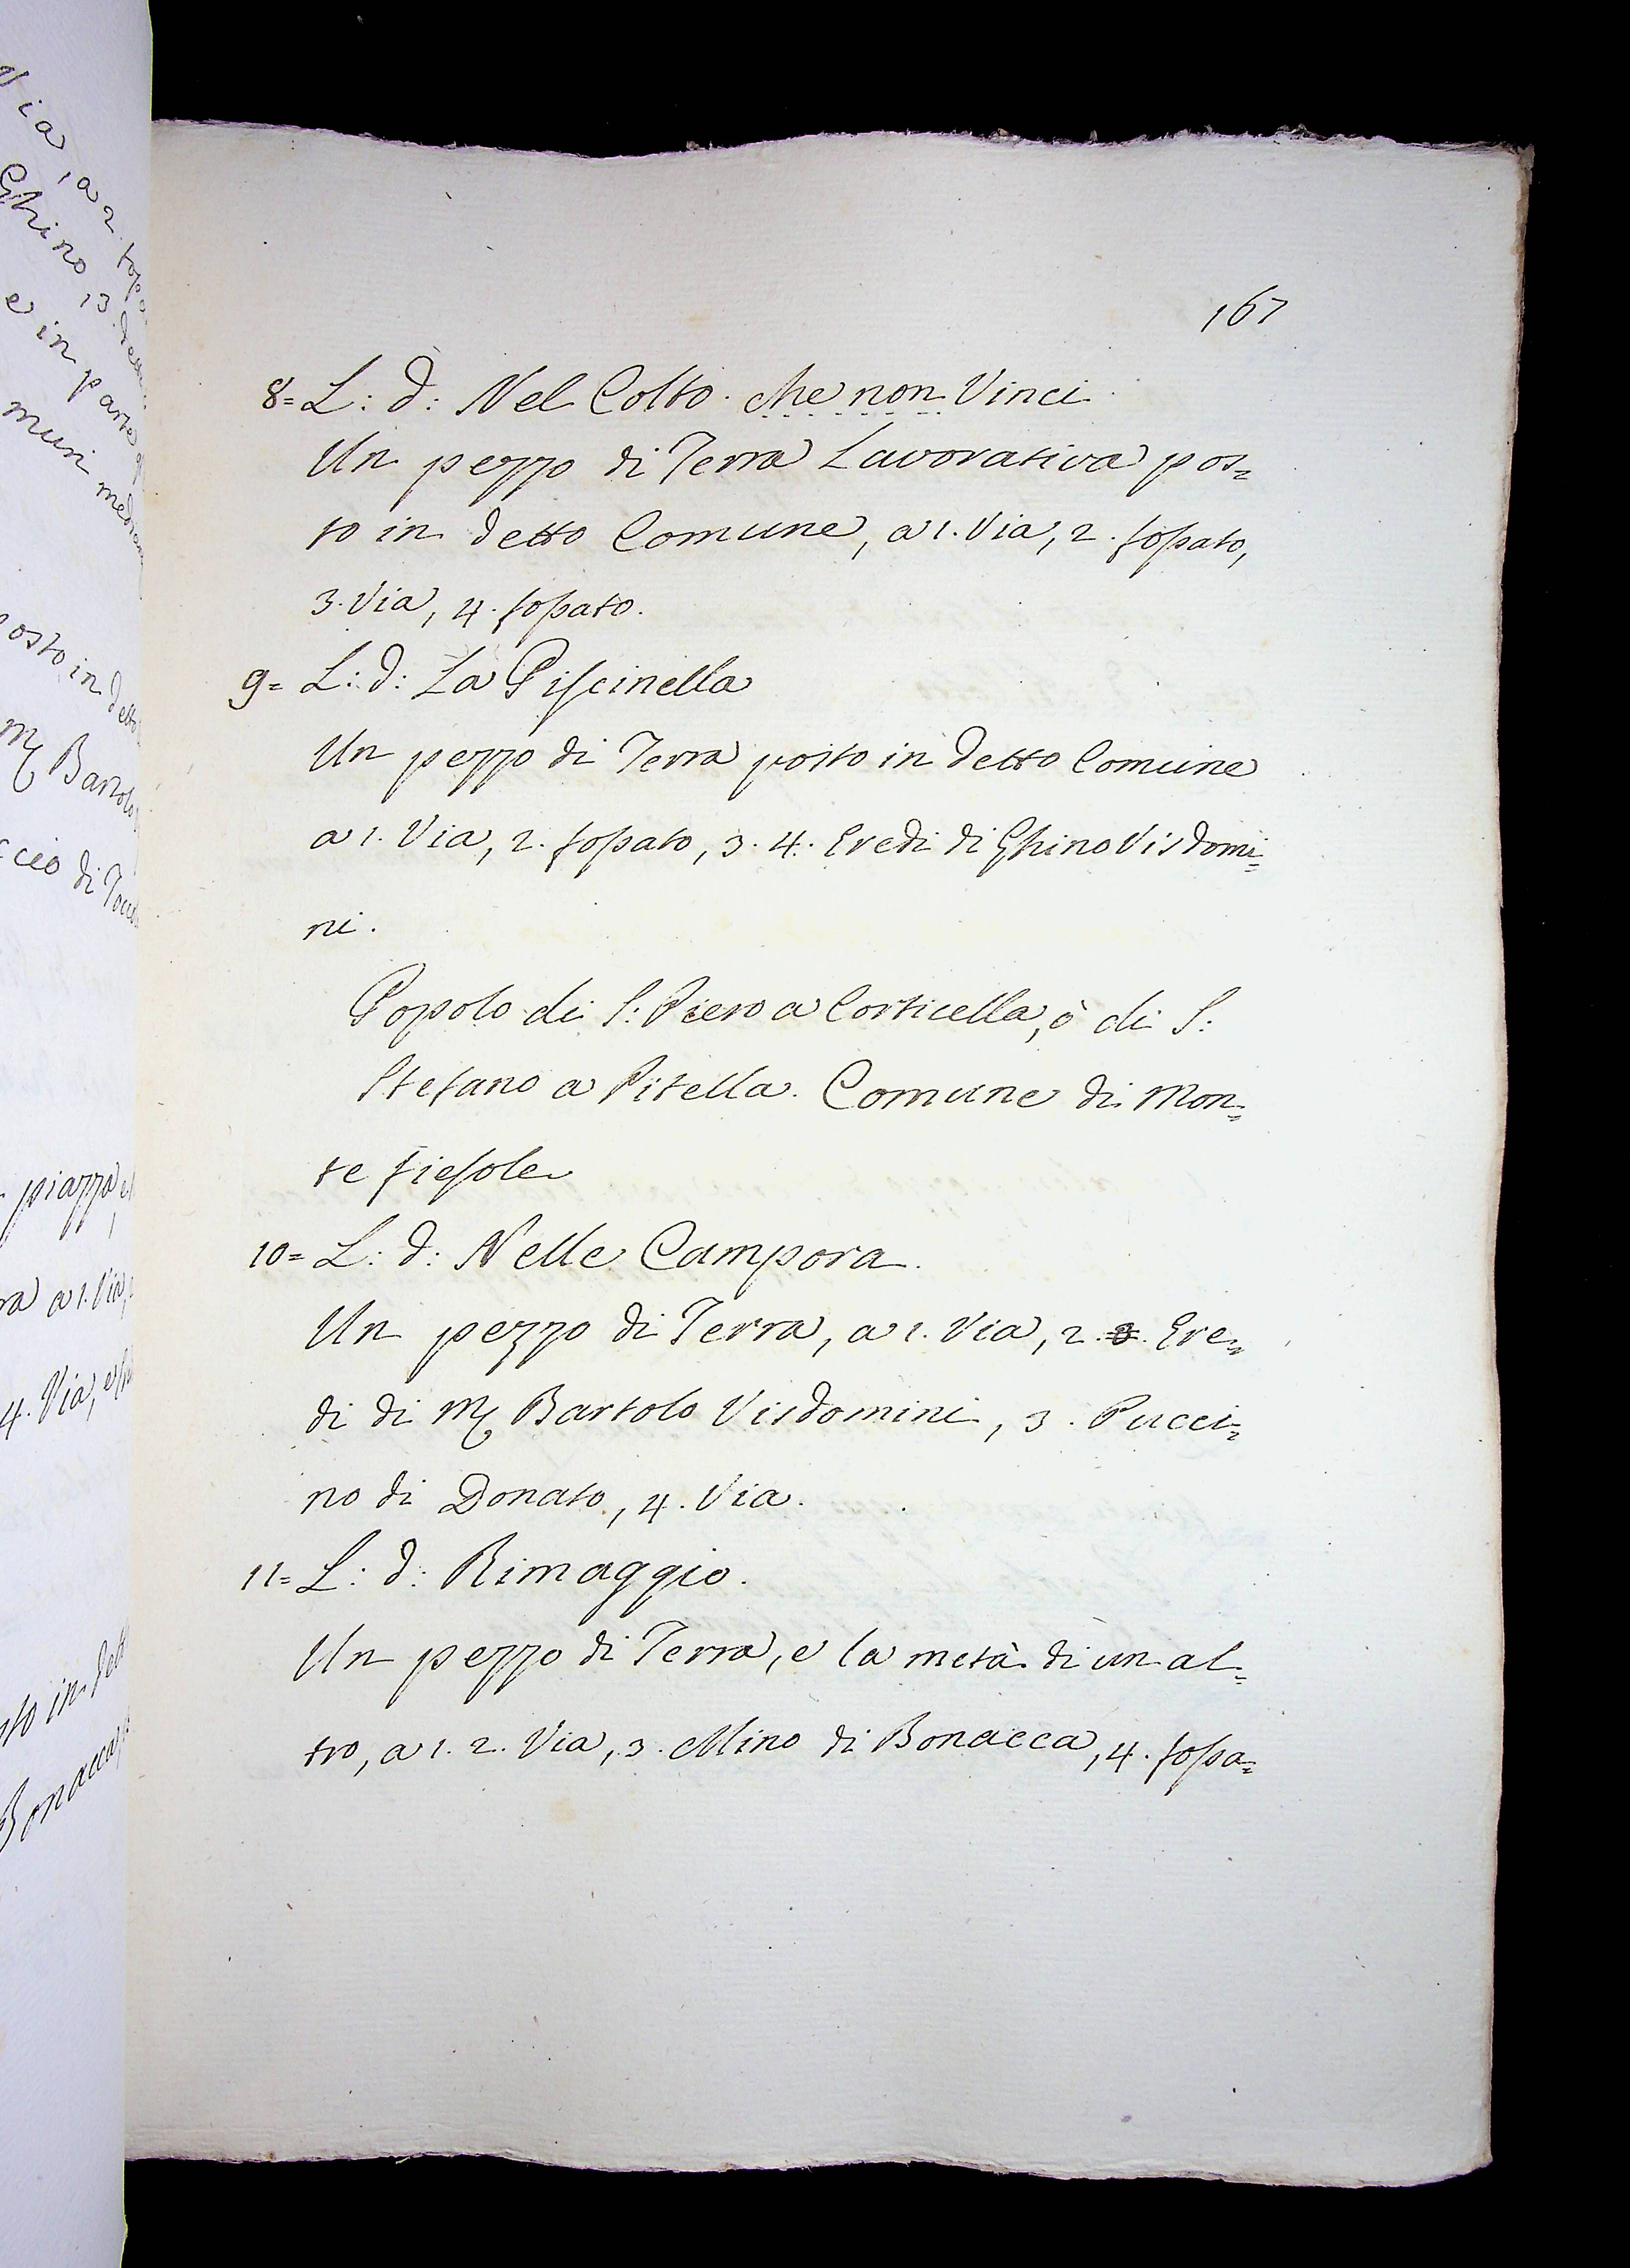 via, a 2. fos
Ghino, 3. 
e in parte
muri
osto in detto
Mꝭ Bartolo
ccio di
piazza, e
ra a 1. Via,
4. Via, e
sto in dett
Bonacca,
167
8= L: d: Nel Colto che non Vinci
Un pezzo di Terra Lavorativa pos=
to in detto Comune, a 1. Via, 2. fossato,
3. Via, 4. fossato.
9= L: d: La Piscinella
Un pezzo di Terra posto in detto Comune
a 1. Via, 2. fossato, 3. 4. Eredi di Ghino Visdomi=
ni.
Popolo di S: Piero a Corticella, ò di S:
Stefano a Pitella. Comune di Mon=
te fiesole
10= L: d: Nelle Campora.
Un pezzo di Terra, a 1. Via, 2. 3. Ere=
di di Mꝭ Bartolo Visdomini, 3. Pucci=
no di Donato, 4. Via.
11= L: d: Rimaggio.
Un pezzo di Terra, e la metà di un al=
tro, a 1. 2. Via, 3. Mino di Bonacca, 4. fossa=